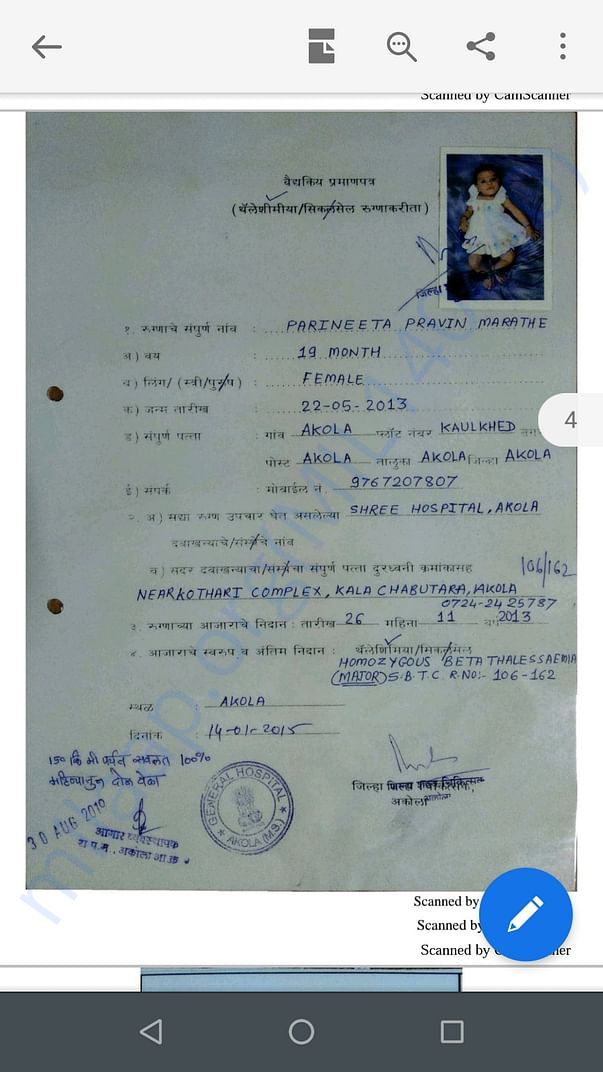 Scanned by CamScanner
वैद्यकिय प्रमाणपत्र
(थॅलेशीमीया/सिकलसेल रुग्णाकरीता)
जिल्हा
१. रुग्णाचे संपुर्ण नांव : PARINEETA PRAVIN MARATHE
अ) वय : 19 MONTH
ब) लिंग/ (स्त्री/पुरुष) : FEMALE
क) जन्म तारीख : 22-05-2013
4
ड) संपुर्ण पत्ता : गांव AKOLA प्लॉट नंबर KAULKHED
पोस्ट AKOLA तालुका AKOLA जिल्हा AKOLA
ई) संपर्क : मोबाईल नं. 9767207807
२. अ) सद्या रुग्ण उपचार घेत असलेल्या SHREE HOSPITAL, AKOLA
दवाखन्याचे/संस्थेचे नांव
ब) सदर दवाखन्याचा/संस्थेचा संपुर्ण पत्ता दुरध्वनी क्रमांकासह 106/162
NEAR KOTHARI COMPLEX, KALA CHABUTARA, AKOLA
0724-24 25787
३. रुग्णाच्या आजाराचे निदान : तारीख 26 महिना 11 वर्ष 2013
४. आजाराचे स्वरुप व अंतिम निदान : थॅलेशिमिया/सिकलसेल
HOMOZYGOUS BETA THALESSAEMIA
(MAJOR) S.B.T.C. R.NO:- 106-162
स्थळ : AKOLA
दिनांक : 14-01-2015
150 कि मी पर्यंत सवलत 100%
महिन्यातून दोन वेळा
30 AUG 2019
आगार व्यवस्थापक
रा.प.म., अकोला
GENERAL HOSPITAL
AKOLA (M.S)
जिल्हा शल्य चिकित्सक,
अकोला
Scanned by
Scanned by
Scanned by